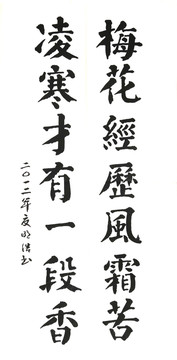 梅花經歷風霜苦
凌寒才有一段香
二〇一二年夏明浩书